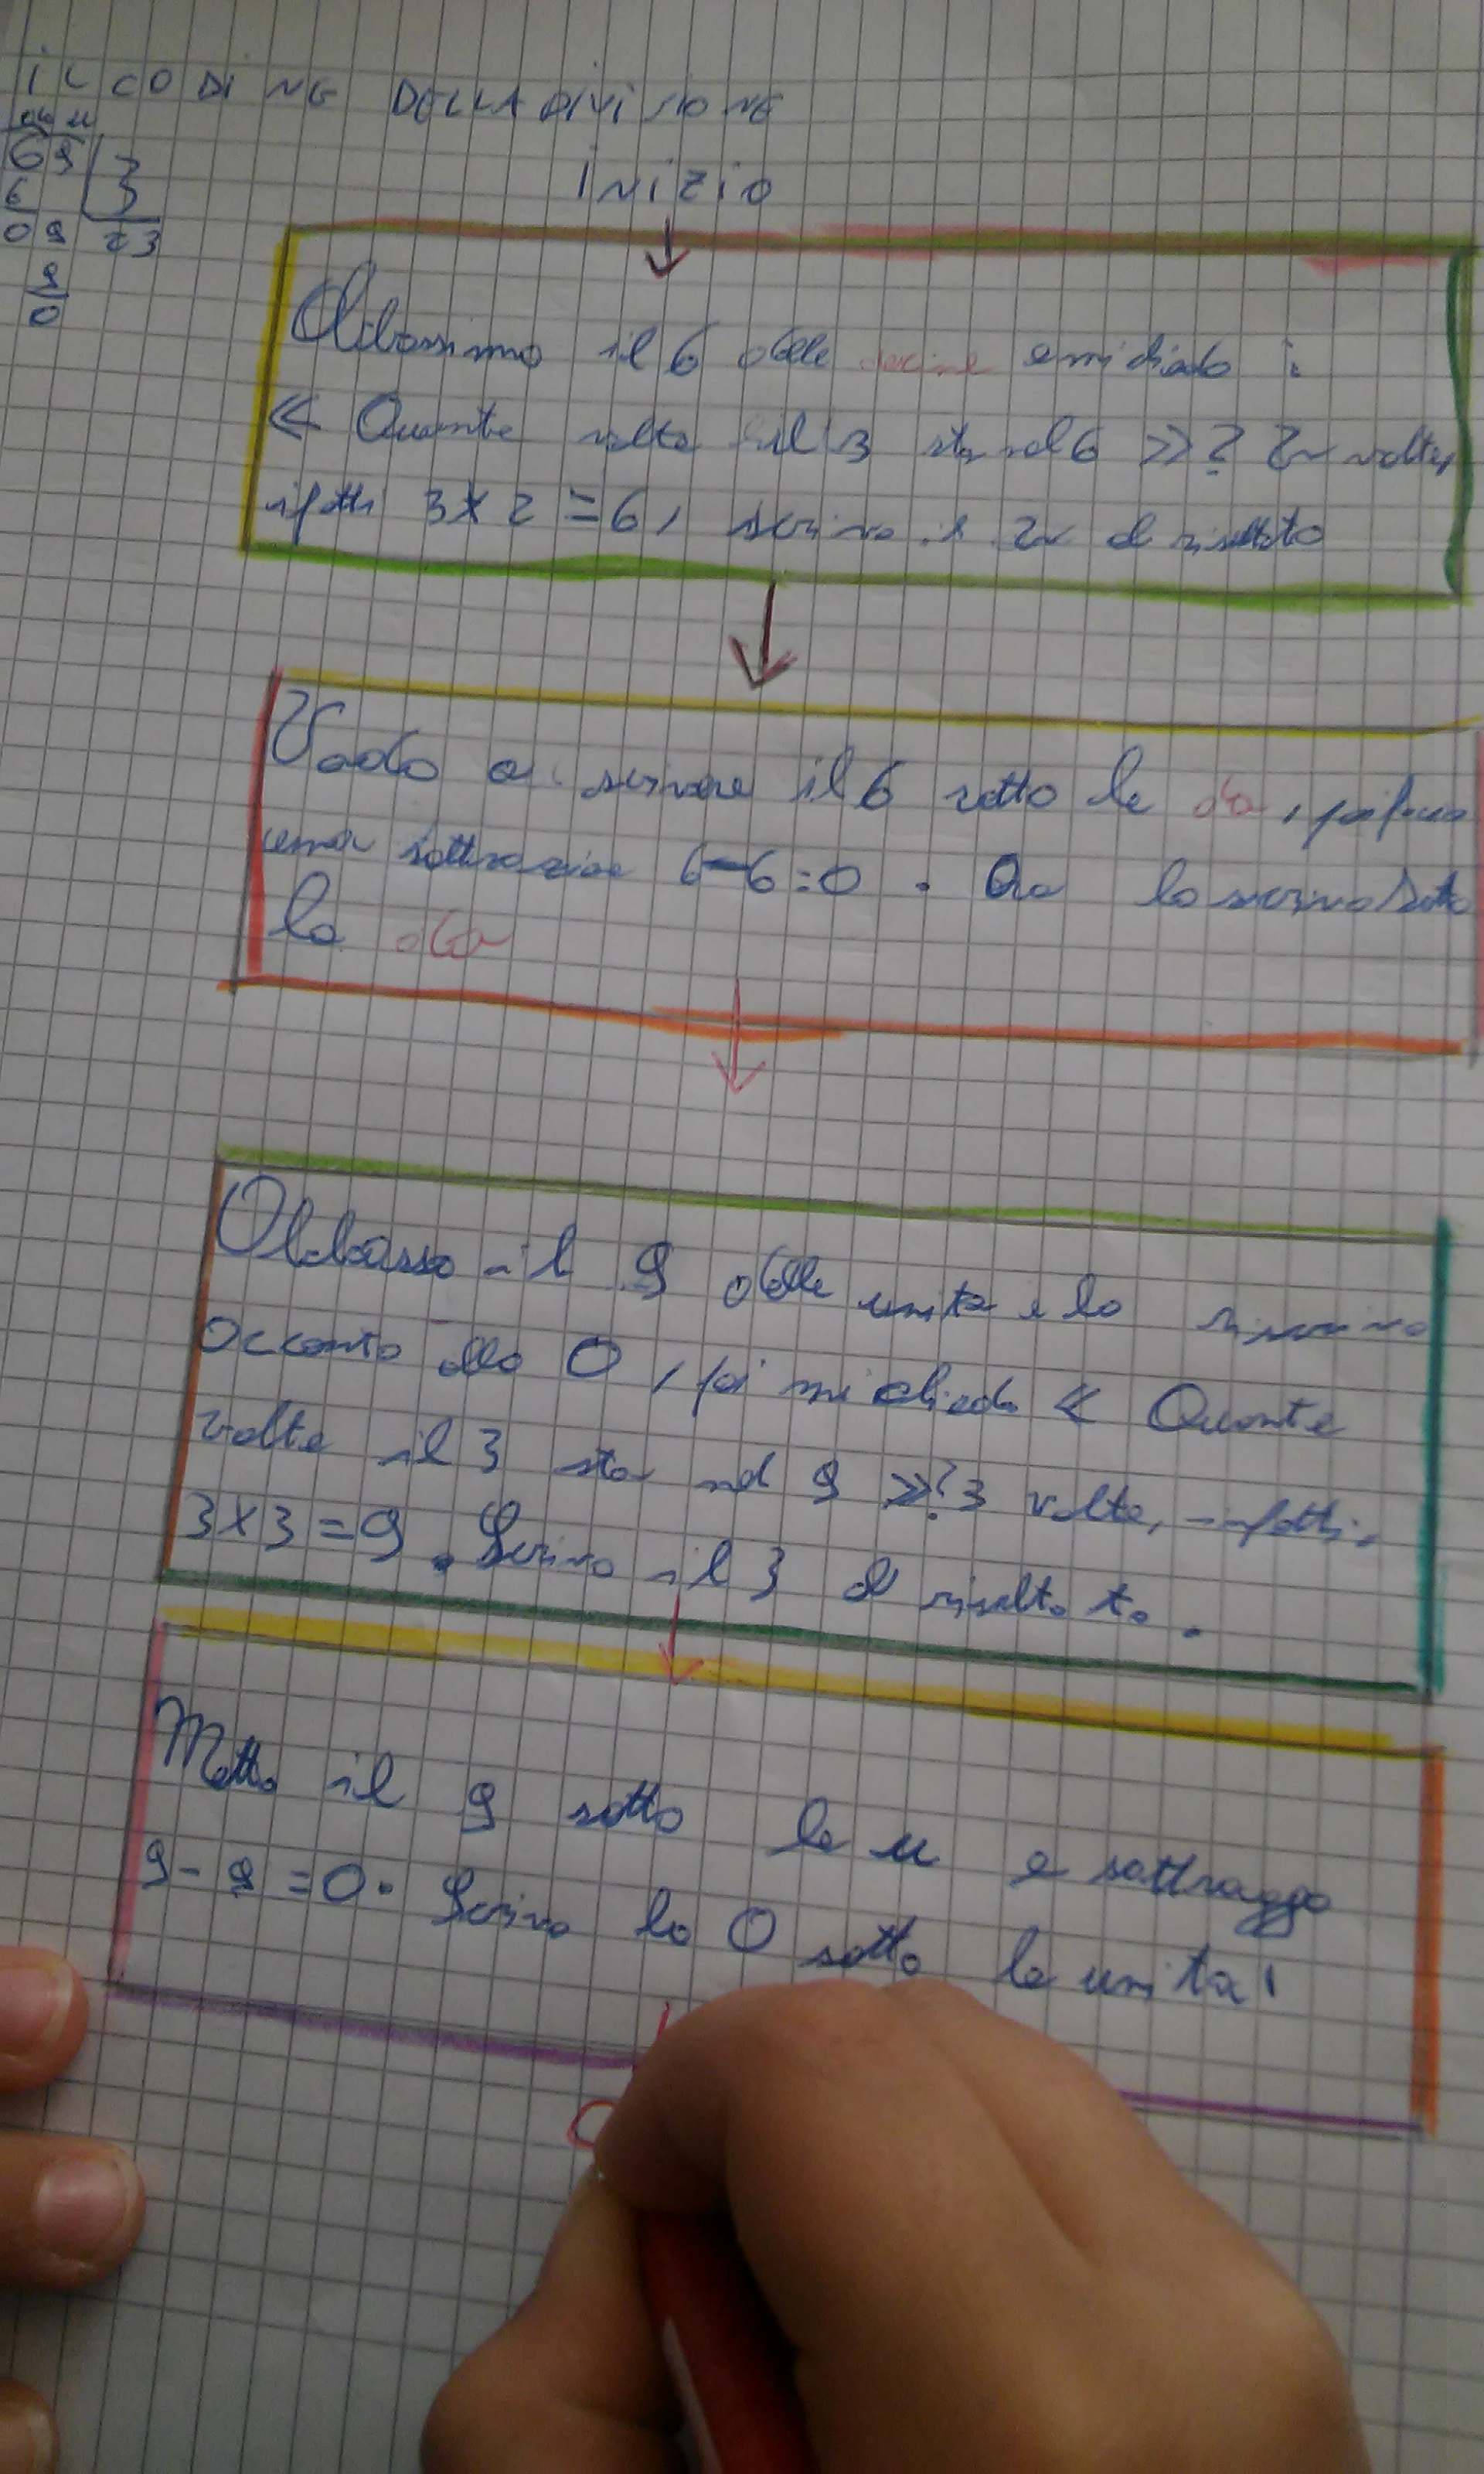 IL CODING DELLA DIVISIONE
da u
69 3
6
09 23
9
0
INIZIO
Abbassimo il 6 delle decine e mi chiedo :
« Quante volte il 3 sta nel 6 »? 2 volte,
ifatti 3x2=6, scrivo il 2 al risultato
Vado a scrivere il 6 sotto le da, poi faccio
una sottrazione 6-6=0 . Ora lo scrivo sotto
la da
Abbasso il 9 delle unita e lo riscrivo
accanto allo 0, poi mi chiedo « Quante
volte il 3 sta nel 9 »? 3 volte, infatti
3x3=9. Scrivo il 3 al risultato.
Metto il 9 sotto le u e sottraggo
9-9=0. Scrivo lo 0 sotto le unita'